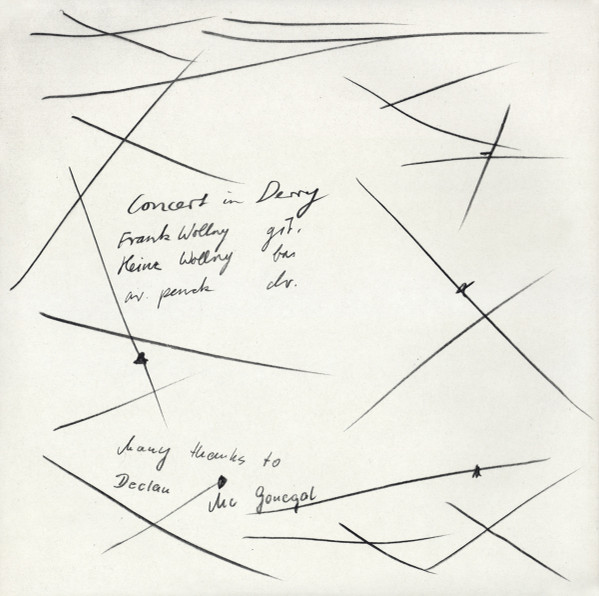 Concert in Derry
Frank Wollny git.
Heinz Wollny bas
ar. penck dr.
Many thanks to
Declan Mc Gonegal